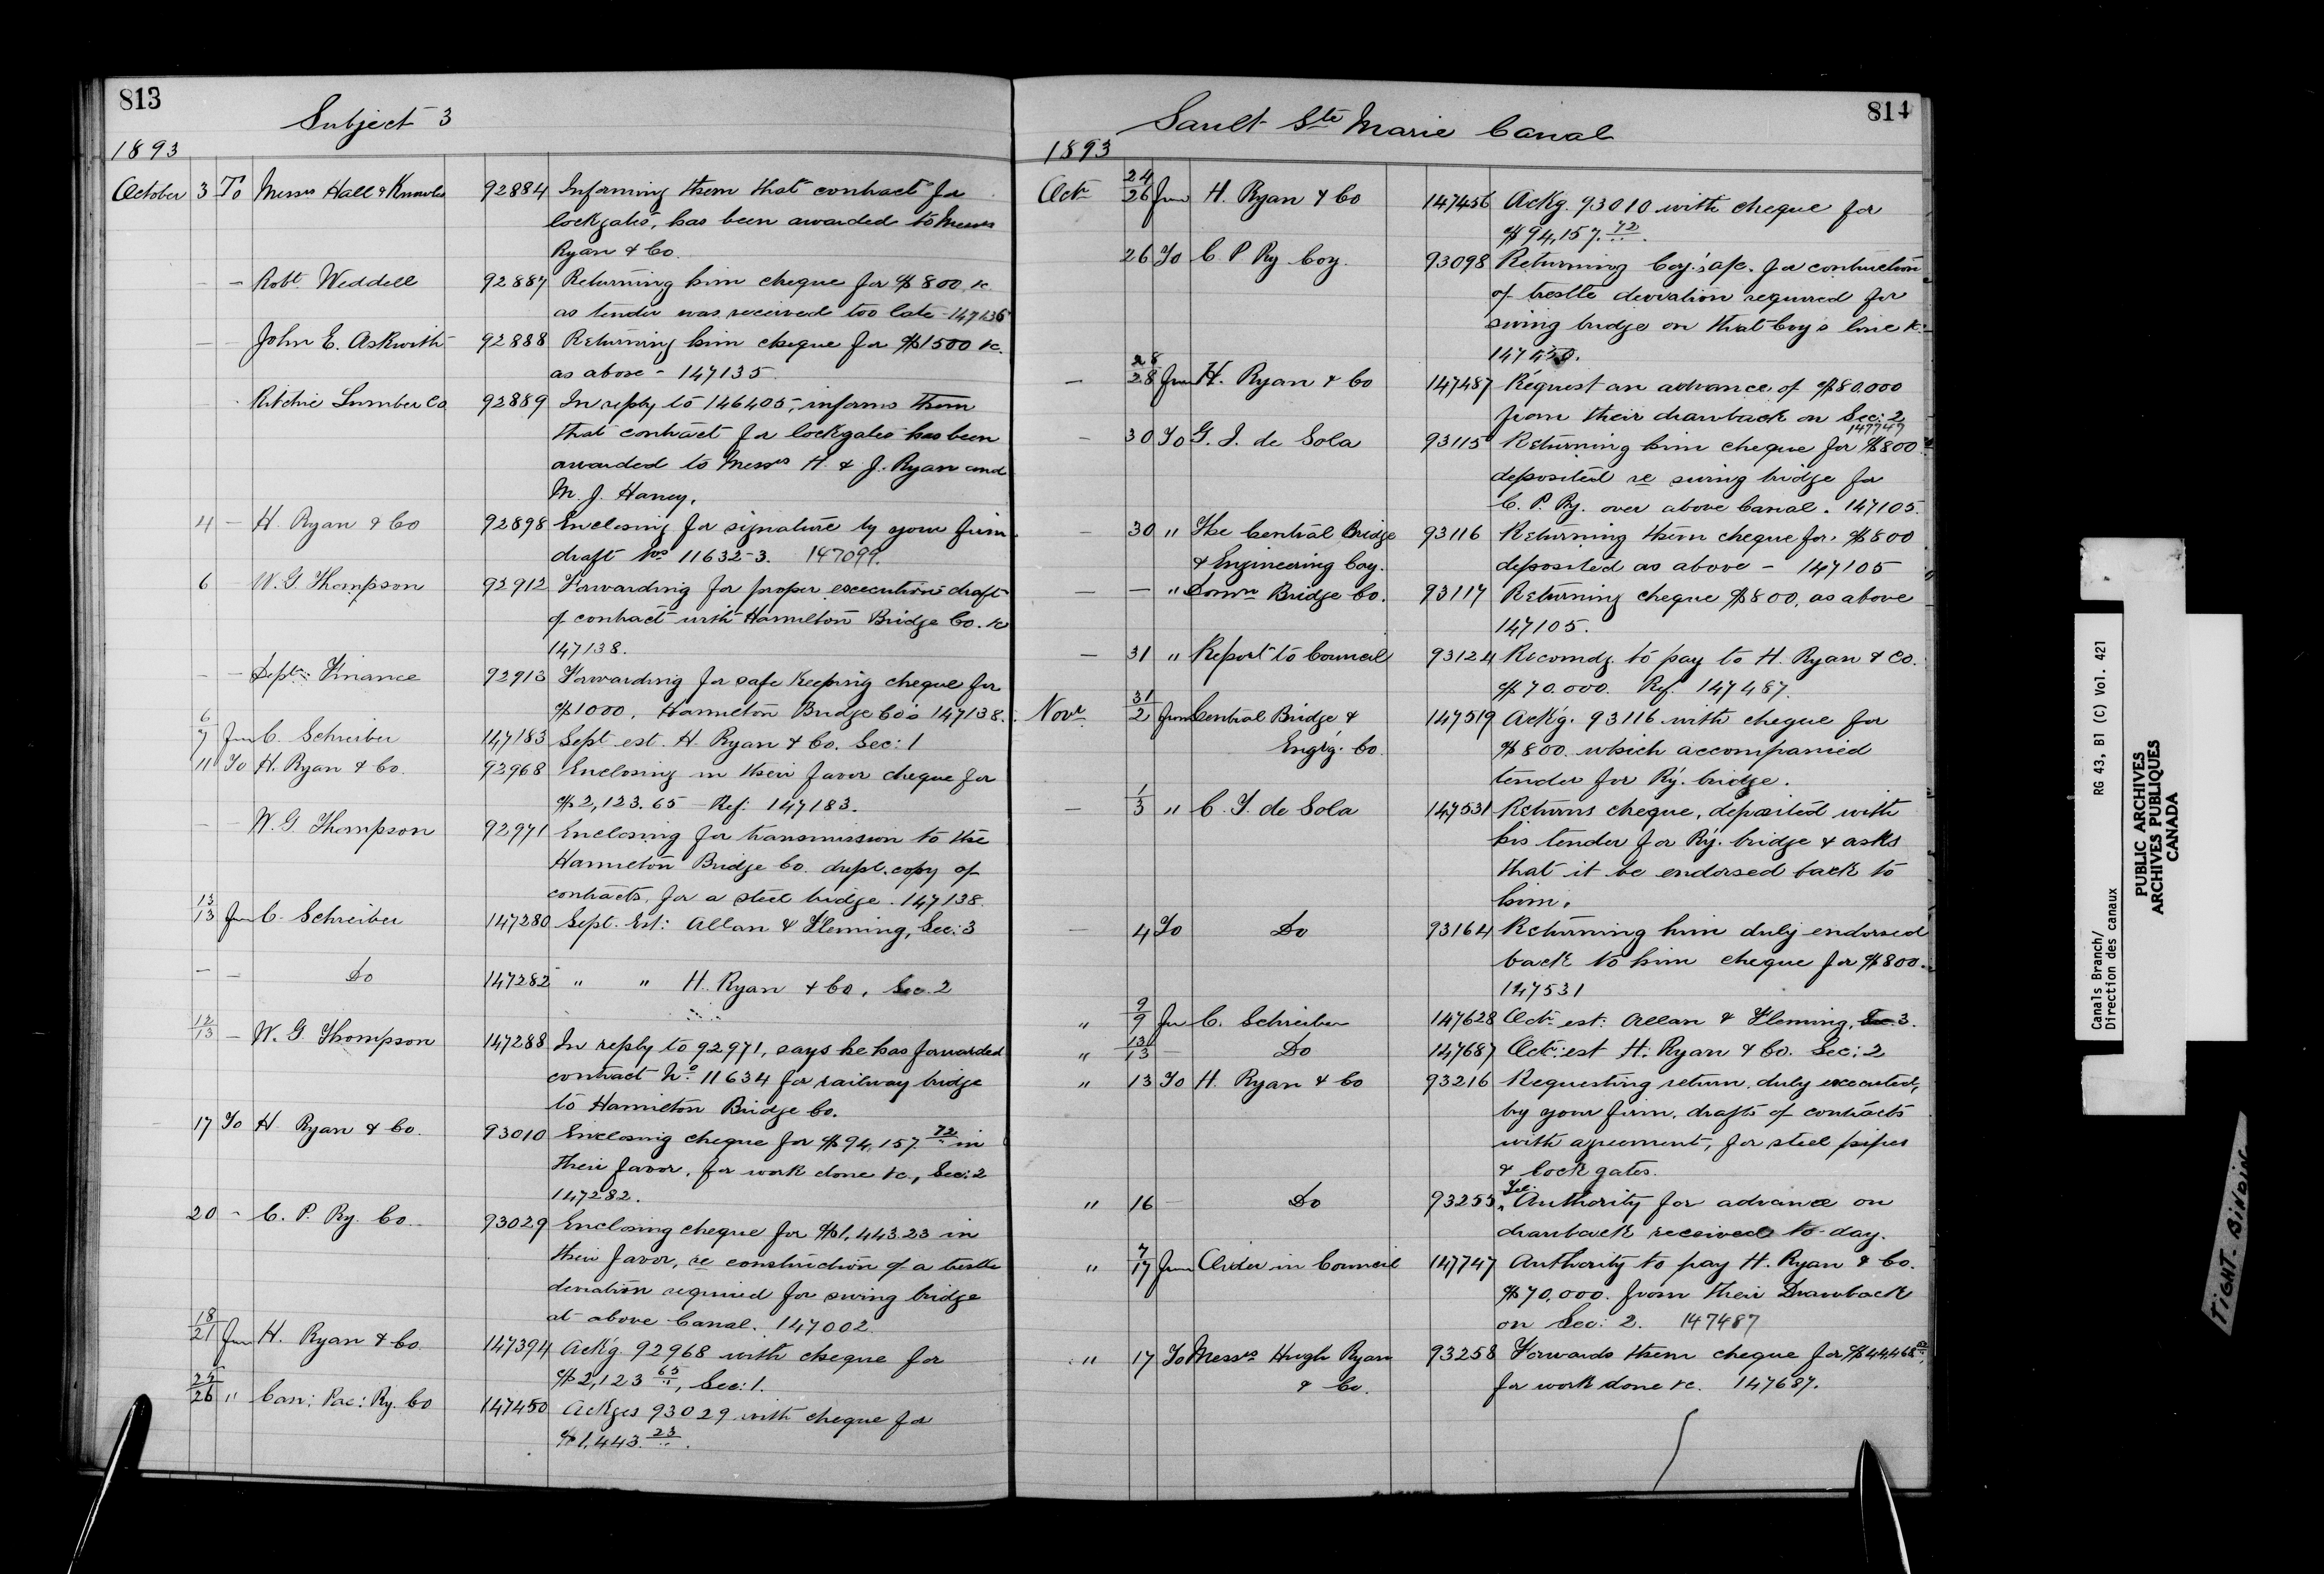 813
Subject 3
1893
October 3 To Messrs Hall & Knowles 92884 Informing them that contract for
lockgates, has been awarded to Messrs
Ryan & Co.
— — Robt. Weddell 92887 Returning him cheque for $800 &c
as tender was received too late - 147136
— — John E. Askwith 92888 Returning him cheque for $1500 &c.
as above - 147135
Ritchie Lumber Co 92889 In reply to 146405, informs them
that contract for lockgates has been
awarded to Messrs H. & J. Ryan and
M. J. Haney.
4 — H. Ryan & Co 92898 Enclosing for signature by your firm
draft Nos 11632-3. 147099.
6 — W. G. Thompson 92912 Forwarding for proper execution draft
of contract with Hamilton Bridge Co. &c
147138.
— — Dept: Finance 92913 Forwarding for safe Keeping cheque for
$1000. Hamilton Bridge Co's 147138.
6/7 from C. Schreiber 147183 Sept est. H. Ryan & Co. Sec: 1
11 To H. Ryan & Co. 92968 Enclosing in their favor cheque for
$2,123.65 Ref: 147183.
— — W. G. Thompson 92971 Enclosing for transmission to the
Hamilton Bridge Co. dupl. copy of
contracts, for a steel bridge. 147138.
13/13 from C. Schreiber 147280 Sept. Est: Allan & Fleming, Sec: 3
— — Do 147282 " " H. Ryan & Co, Sec. 2
12/13 — W. G. Thompson 147288 In reply to 92971, says he has forwarded
contract No. 11634 for railway bridge
to Hamilton Bridge Co.
17 To H. Ryan & Co. 93010 Enclosing cheque for $94,157.72 in
their favor, for work done &c., Sec: 2
147282.
20 - C. P. Ry. Co. 93029 Enclosing cheque for $1,443.23 in
their favor, re construction of a trestle
deviation required for swing bridge
at above Canal. 147002
18/21 from H. Ryan & Co. 147394 Ack'g. 92968 with cheque for
$2,123 65, Sec: 1.
25/26 " Can: Pac: Ry. Co 147450 Ackges 93029 with cheque for
$1,443.23.
814
Sault Ste Marie Canal
1893
Octr 24/26 from H. Ryan & Co 147456 Ackg. 93010 with cheque for
$94,157.72.
26 To C P Ry Coy. 93098 Returning Coy's a/c. for contruction
of trestle deviation required for
swing bridge on that Coy's line &c.
147450.
— 28/28 from H. Ryan & Co 147487 Request an advance of $80.000
from their drawback on Sec: 2
147747
— 30 To G. I. de Sola 93115 Returning him cheque for $800
deposited re swing bridge for
C. P. Ry. over above Canal. 147105.
— 30 " The Central Bridge 93116 Returning them cheque for $800
& Engineering Coy. deposited as above - 147105
— — " Domn Bridge Co. 93117 Returning cheque $800, as above
147105.
— 31 " Report to Council 93124 Recomdg. to pay to H. Ryan & Co.
$70.000. Ref. 147487.
Novr 31/2 from Central Bridge & 147519 Ack'g. 93116 with cheque for
Eng'g. Co. $800 which accompanied
tender for Ry. bridge.
— 1/3 " C. I. de Sola 147531 Returns cheque, deposited with
his tender for Ry. bridge & asks
that it be endorsed back to
him.
— 4 To Do 93164 Returning him duly endorsed
back to him cheque for $800.
147531
" 9/9 fr C. Schreiber 147628 Oct: est: Allan & Fleming, Sec. 3.
" 13/13 — Do 147687 Oct: est H. Ryan & Co. Sec: 2
" 13 To H. Ryan & Co 93216 Requesting return, duly executed,
by your firm, drafts of contracts
with agreement, for steel pipes
& lock gates.
" 16 — Do 93255 Tel: Authority for advance on
drawback received to-day.
" 7/17 from Order in Council 147747 Authority to pay H. Ryan & Co.
$70,000. from their Drawback
on Sec: 2. 147487
" 17 To Messrs Hugh Ryan 93258 Forwards them cheque for $44468
& Co. for work done &c. 147687.
Canals Branch/
Direction des canaux
RG 43, B1 (C) Vol. 421
PUBLIC ARCHIVES
ARCHIVES PUBLIQUES
CANADA
TIGHT BINDING